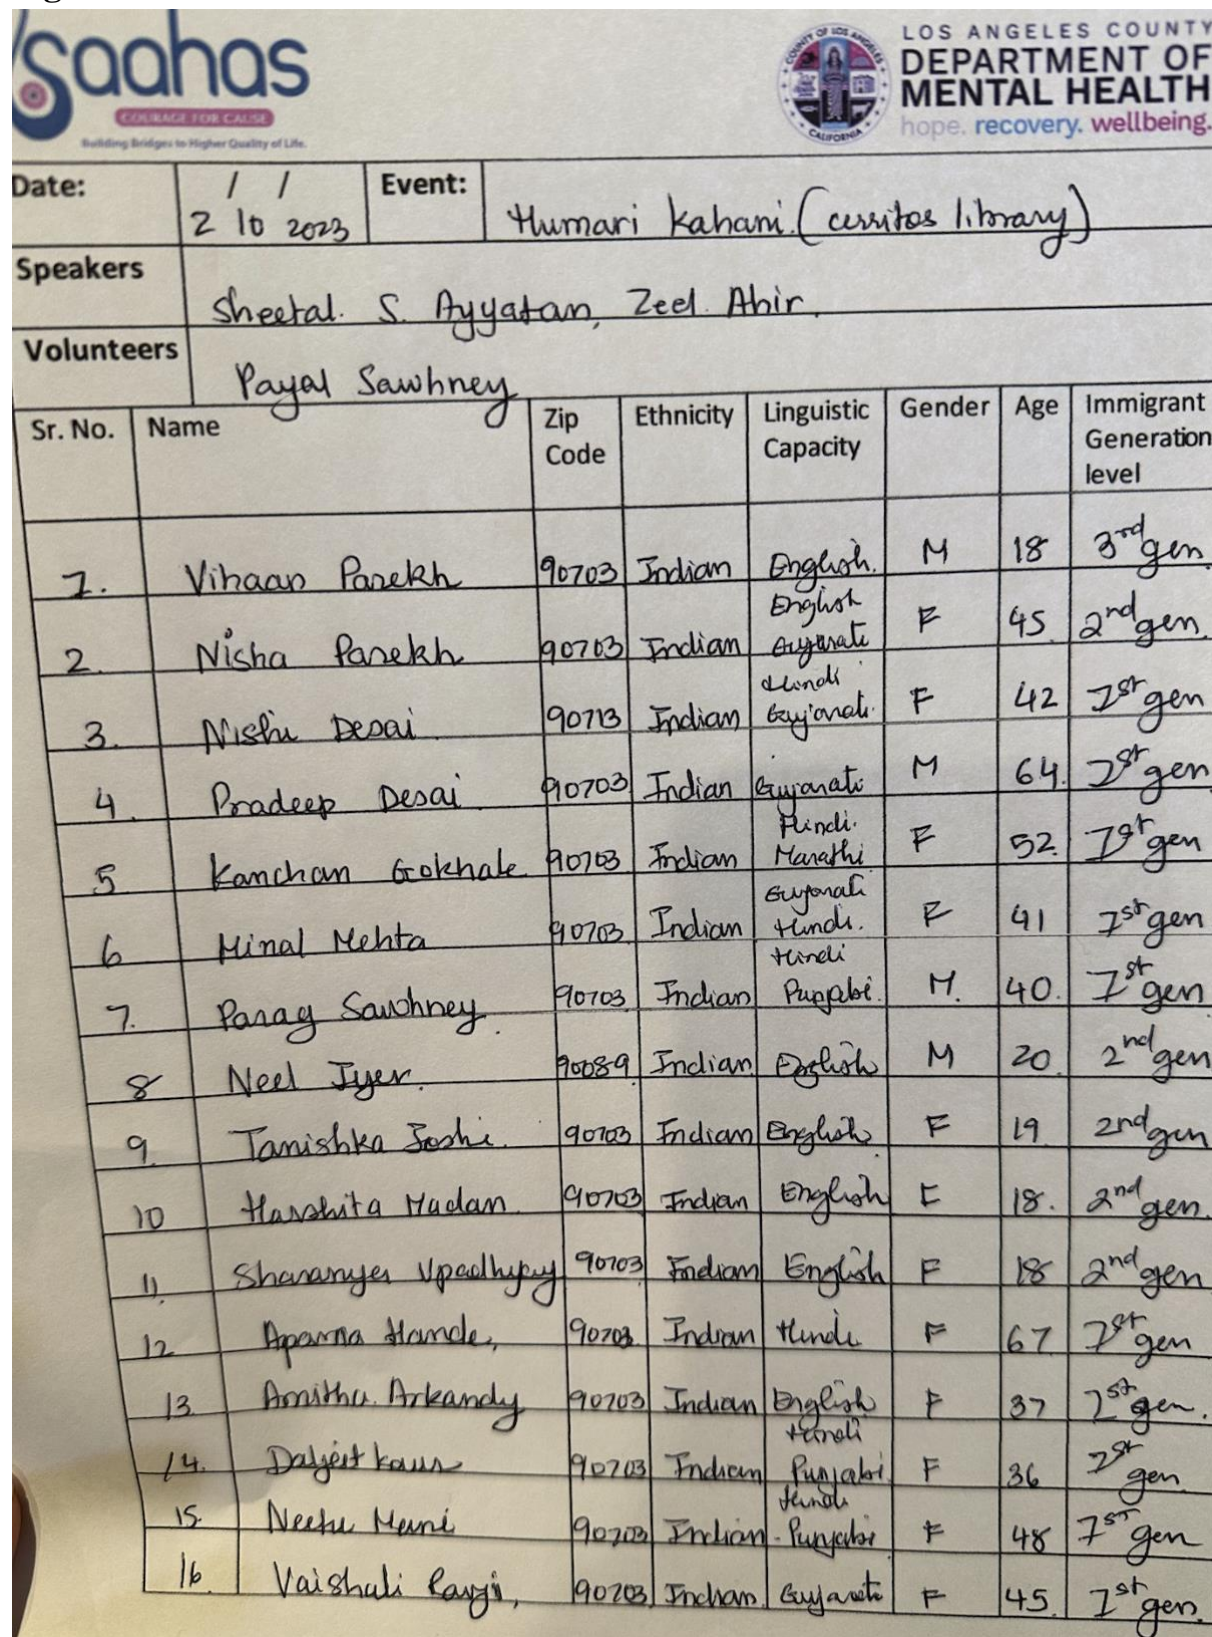 Saahas
COURAGE FOR CAUSE
Building Bridges to Higher Quality of Life.
COUNTY OF LOS ANGELES
CALIFORNIA
LOS ANGELES COUNTY
DEPARTMENT OF
MENTAL HEALTH
hope. recovery. wellbeing.
Date: / / 2 10 2023 Event: Humari Kahani (cerritos library)
Speakers Sheetal. S. Ayyatan, Zeel. Ahir.
Volunteers Payal Sawhney
Sr. No. Name Zip Code Ethnicity Linguistic Capacity Gender Age Immigrant Generation level
1. Vihaan Parekh 90703 Indian English. M 18 3rd gen
2. Nisha Parekh 90703 Indian English Gujarati F 45 2nd gen.
3. Nishi Desai 90713 Indian Hindi Gujarati F 42 1st gen
4 Pradeep Desai 90703 Indian Gujarati M 64. 1st gen
5 Kanchan Gokhale 90703 Indian Hindi. Marathi F 52. 1st gen
6 Minal Mehta 90703 Indian Gujarati Hindi. F 41 1st gen
7. Parag Sawhney 90703 Indian Hindi Punjabi. M. 40. 1st gen
8 Neel Iyer. 90089 Indian English M 20 2nd gen
9. Tanishka Joshi. 90703 Indian English F 19 2nd gen
10 Harshita Madan 90703 Indian English F 18. 2nd gen.
11. Sharanya Upadhyay 90703 Indian English F 18 2nd gen
12 Aparna Hande, 90703 Indian Hindi F 67 1st gen
13 Amitha. Arkandy 90703 Indian English F 37 1st gen.
14. Daljeit Kaur 90703 Indian Hindi Punjabi F 36 1st gen
15. Neetu Meni 90703 Indian Hindi Punjabi F 48 1st gen
16. Vaishali 90703 Indian Gujarati F 45. 1st gen.